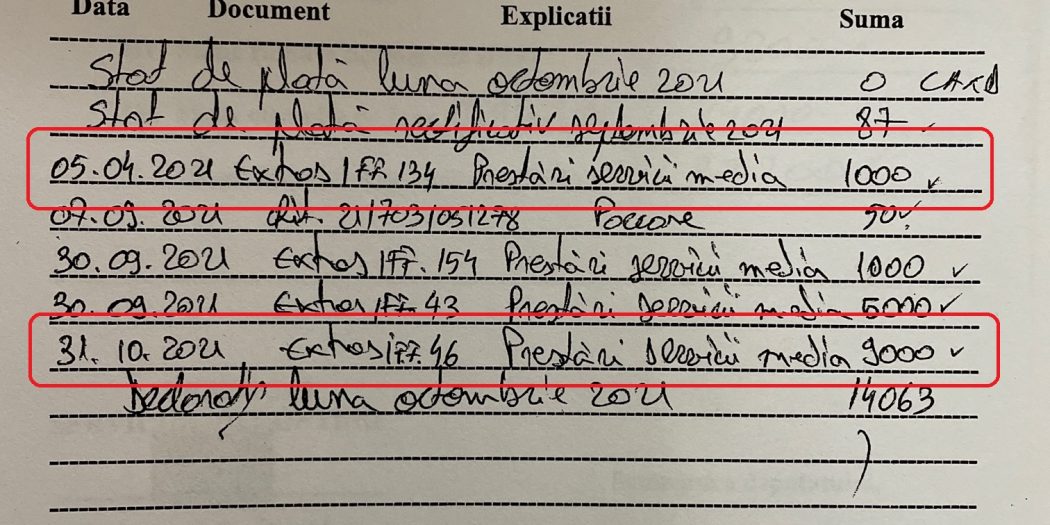 Data Document Explicatii Suma
Stat de plată luna octombrie 2021 0 CARD
Stat de plată rectificativ septembrie 2021 87
05.04.2021 Extras /ff. 134 Prestări servicii media 1000
07.09.2021 21/703/051278 50
30.09.2021 Extras /ff. 154 Prestări servicii media 1000
30.09.2021 Extras /ff. 43 Prestări servicii media 5000
31.10.2021 Extras /ff. 46 Prestări servicii media 9000
luna octombrie 2021 14063